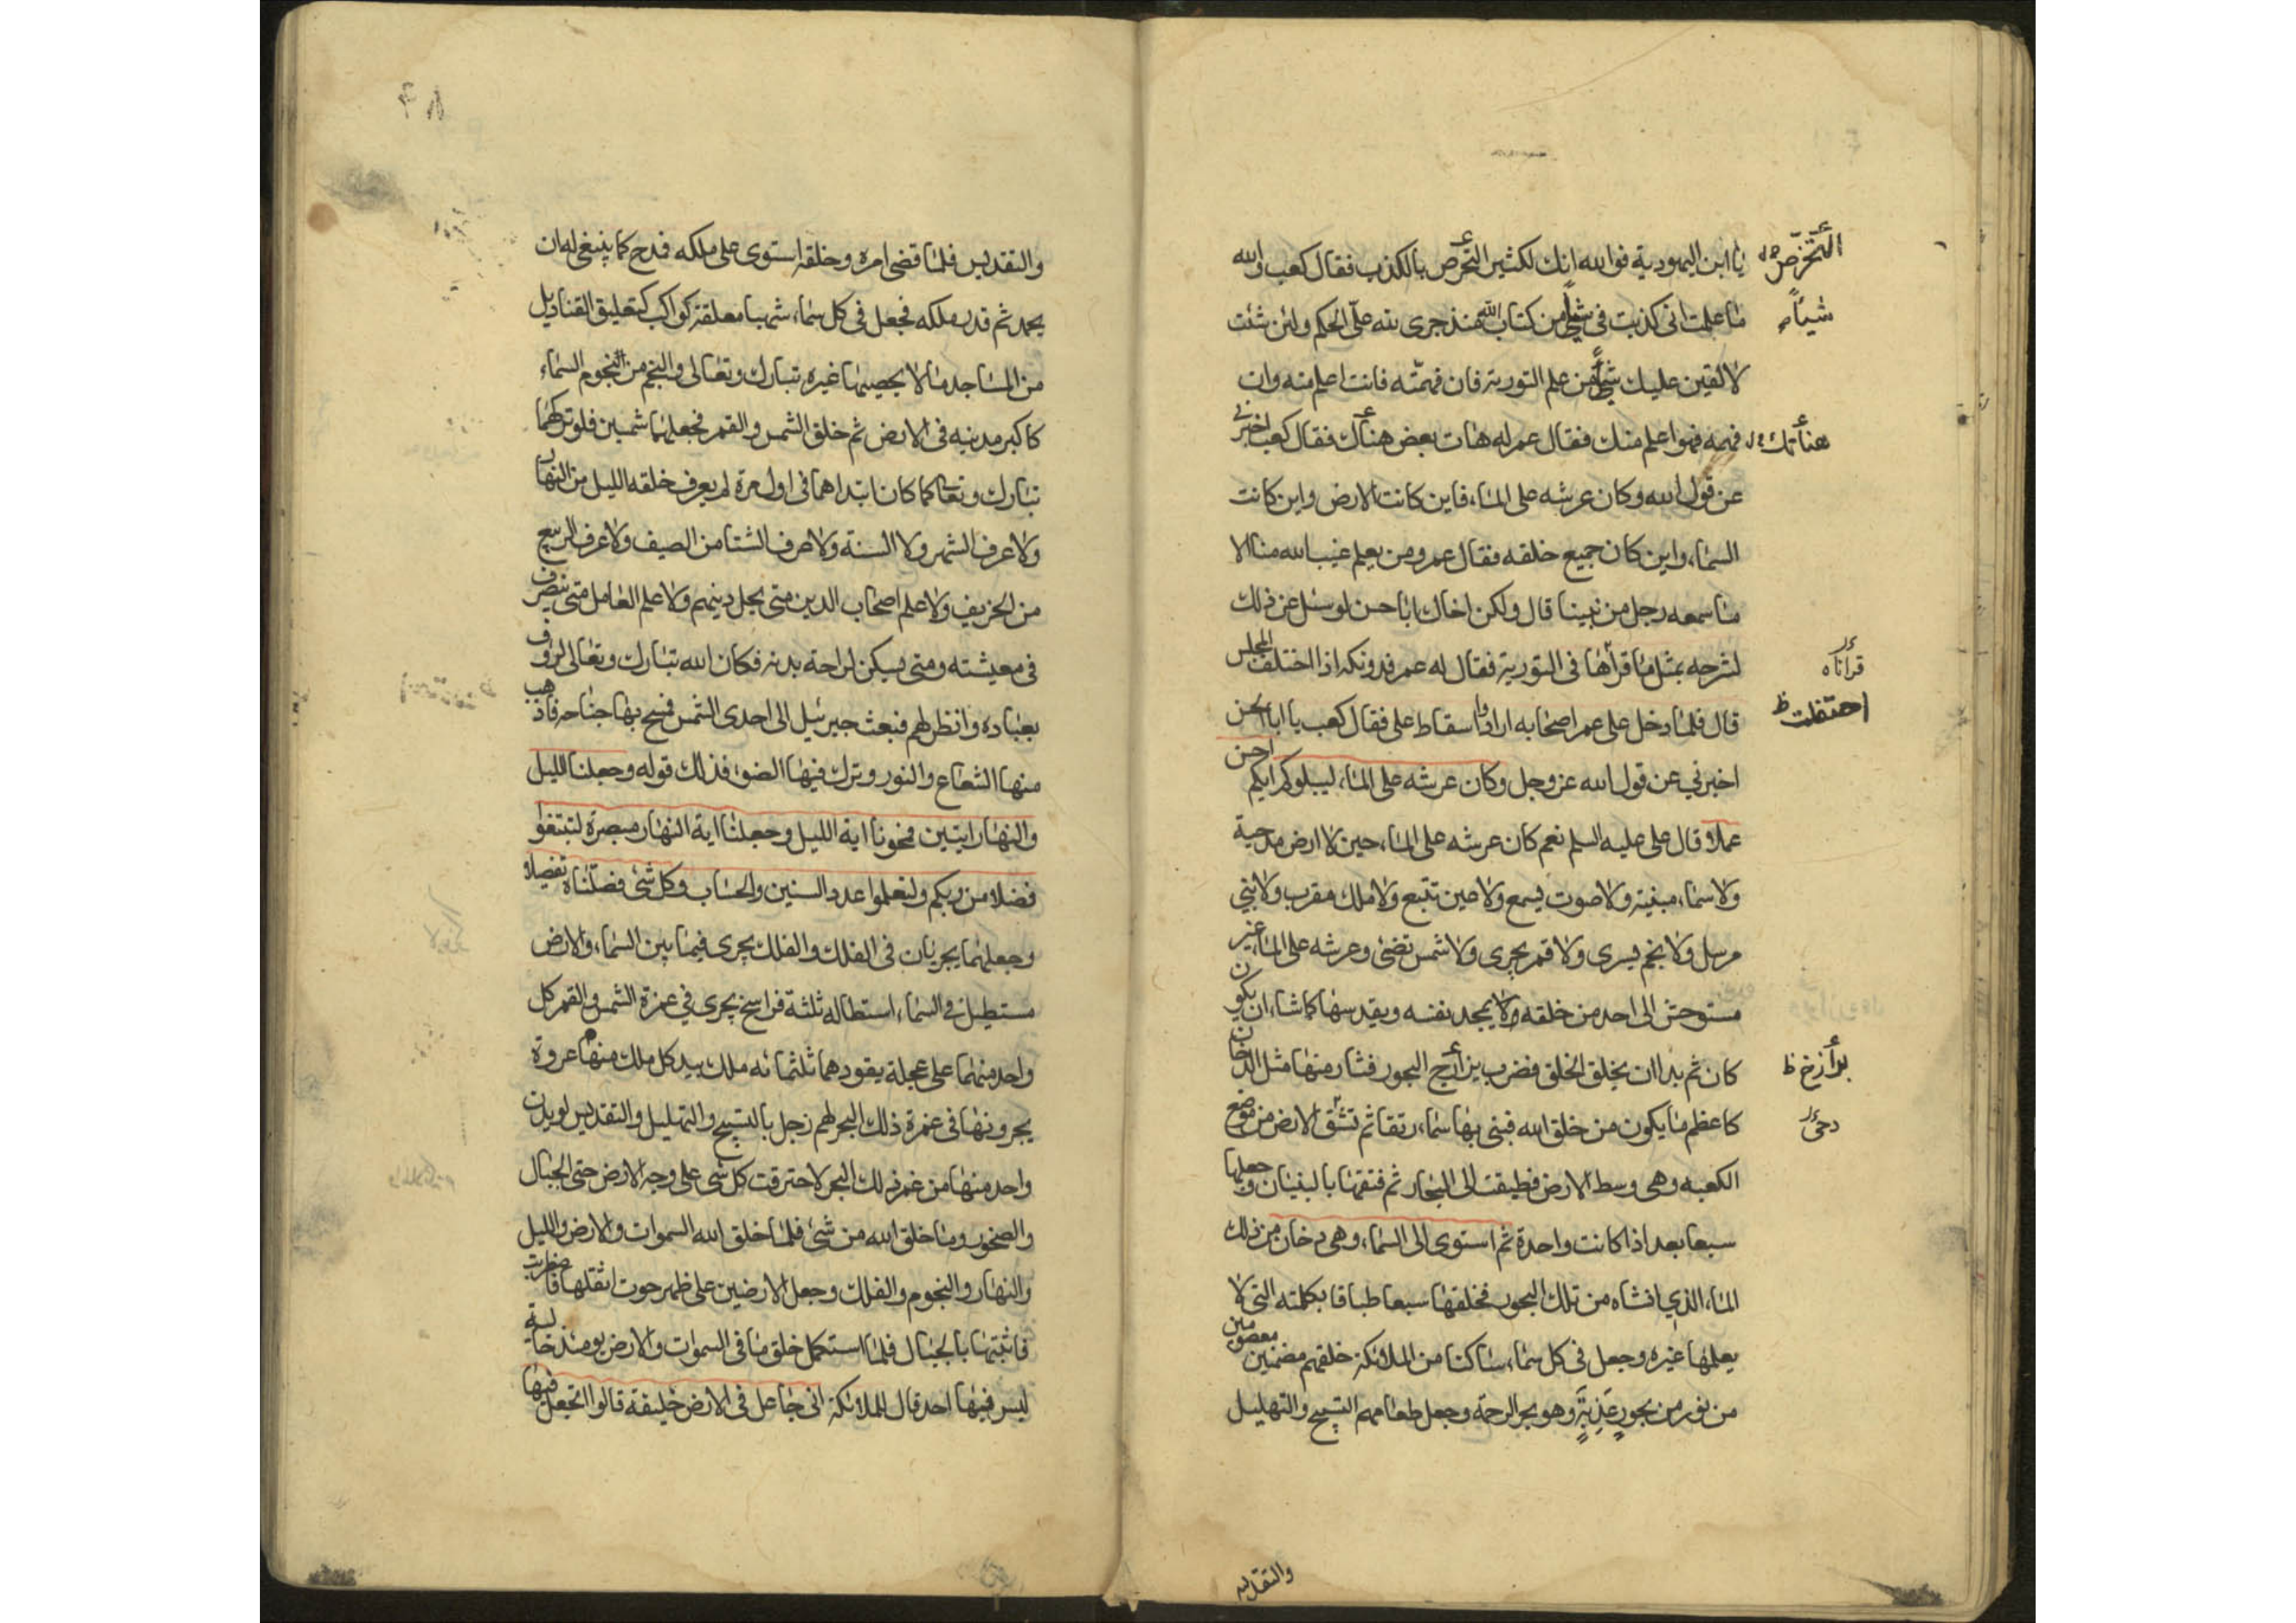 يا ابن اليهودية فوالله انك لكثير التخرص بالكذب فقال كعب والله
التخرص
ما علمت انى كذبت فى شيئا من كتاب الله منذ جرى لله علىّ الحكم ولئن شئت
شيئا
لالقين عليك شيئا من علم التورية فان فهمته فانت اعلم منه وان
فهمه فهوا علم منك فقال عمر له هات بعض هناك فقال كعب اخبرنى
هناتك
عن قول الله وكان عرشه على الماء فاين كانت الارض واين كانت
السماء واين كان جميع خلقه فقال عمر ومن يعلم غيب الله منا الا
ما سمعه رجل من نبينا قال ولكن اخاك ابا حسن لو سئل عن ذلك
لشرحه بمثل ما قرأها فى التورية فقال له عمر فدونكه اذا اختلف المجلس
قراناه
قال فلما دخل على عمر اصحابه ارادوا اسقاط على فقال كعب يا ابا الحسن
احتفلت ظ
اخبرني عن قول الله عز وجل وكان عرشه على الماء ليبلوكم ايكم احسن
عملا قال على عليه السلم نعم كان عرشه على الماء حين لا ارض مدحية
ولا سماء مبنية ولا صوت يسمع ولا عين تنبع ولا ملك مقرب ولا نبي
مرسل ولا نجم يسرى ولا قمر يجرى ولا شمس تضئ وعرشه على الماء غير
مستوحش الى احد من خلقه ولا يمجد نفسه ويقدسها كما شاء ان يكون
كان ثم بدا ان يخلق الخلق فضرب بزأرج البحور فثار منها مثل الدخان
بزأزخ ظ
كاعظم ما يكون من خلق الله فبنى بها سماء رتقا ثم تشق الارض من موضع
دحى
الكعبه وهى وسط الارض فطبقت الى البحار ثم فتقها بالبنيان وجعلها
سبعا بعد اذا كانت واحدة ثم استوى الى السماء وهى دخان من ذلك
الماء الذي انشاه من تلك البحور فخلقها سبعا طباقا بكلمته التى لا
يعلمها غيره وجعل فى كل سماء ساكنا من الملائكة خلقهم مضمين معصومين
من نور من بحور عذبة وهو بحر الرحمة وجعل طعامهم التسبيح والتهليل
والتقديس
٨٦
والتقديس فلما قضى امره وخلقه استوى على ملكه فمدح كما ينبغى له ان
يحمد ثم قدر ملكه فجعل فى كل سماء شهبا معلقة كواكب كتعليق القناديل
من المساجد ما لا يحصيها غيره تبارك وتعالى والنجم من النجوم السماء
كاكبر مدينه فى الارض ثم خلق الشمس والقمر فجعلهما شمسين فلو تركهما
تبارك وتعا كما كان ابتداهما فى اول مرة لم يعرف خلقه الليل من النهار
ولا عرف الشهر ولا السنة ولا عرف الشتا من الصيف ولا عرف الربيع
من الخريف ولا علم اصحاب الدين متى يحل دينهم ولا علم العامل متى ينصرف
فى معيشته ومتى يسكن لراحة بدنه فكان الله تبارك وتعالى لرؤف
بعباده وانظر لهم فبعث جبرئيل الى احدى الشمس فمسح بها جناحه فاذهب
منها الشعاع والنور وترك فيها الضوء فذلك قوله وجعلنا الليل
والنهار ايتين فمحونا اية الليل وجعلنا اية النهار مبصرة لتبتغوا
فضلا من ربكم ولتعلموا عدد السنين والحساب وكل شئ فصلناه تفصيلا
وجعلهما يجريان فى الفلك والفلك يجرى فيما بين السماء والارض
مستطيل فى السماء استطاله ثلثة فراسخ يجرى في غمرة الشمس والقمر كل
واحد منهما على عجلة يقودهما ثلثمائه ملك بيد كل ملك منها عروة
يجرونها فى غمرة ذلك البحر لهم زجل بالتسبيح والتهليل والتقديس لو بدن
واحد منها من غمر ذلك البحر لاحترقت كل شى على وجه الارض حتى الجبال
والصخور وما خلق الله من شئ فلما خلق الله السموات والارض والليل
والنهار والنجوم والفلك وجعل الارضين على ظهر حوت اثقلها فاضطربت
فاثبتها بالجبال فلما استكمل خلق ما فى السموات والارض يومئذ خالية
ليس فيها احد قال للملائكة انى جاعل فى الارض خليفة قالوا اتجعل فيها